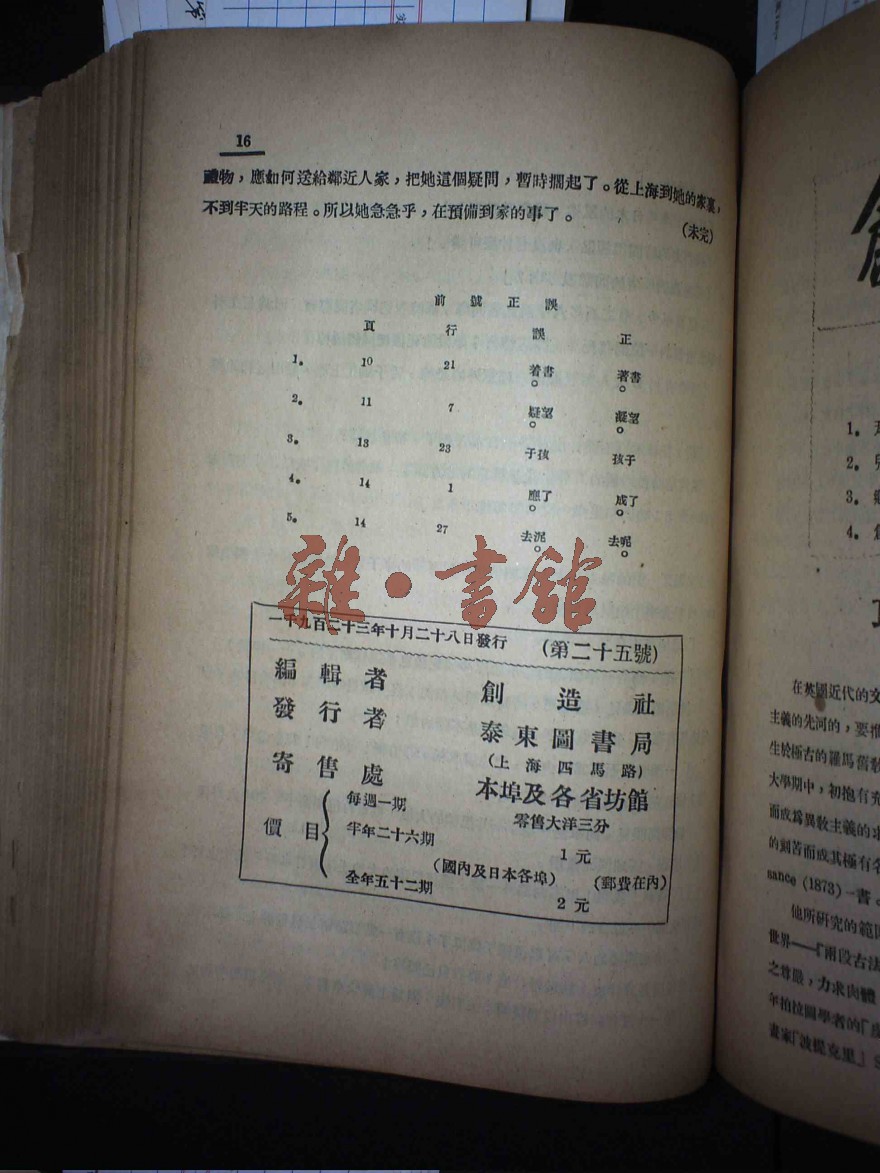 16
禮物，應如何送給鄰近人家，把她這個疑問，暫時擱起了。從上海到她的家裏，
不到半天的路程。所以她急急乎，在預備到家的事了。
（未完）
前號正誤
頁 行 誤 正
1. 10 21 着書 著書
2. 11 7 疑望 凝望
3. 13 23 于孩 孩子
4. 14 1 應了 成了
5. 14 27 去泥 去呢
雜·書館
一千九百二十三年十月二十八日發行 （第二十五號）
編輯者 創造社
發行者 泰東圖書局
（上海四馬路）
寄售處 本埠及各省坊館
價目
每週一期 零售大洋三分
半年二十六期 1元
（國內及日本各埠） （郵費在內）
全年五十二期 2元
1.
2.
3.
4.
在英國近代的文
主義的先河的，要推
生於極古的羅馬舊教
大學期中，初抱有充
而成爲異教主義的求
的刻苦而成其極有名
sance (1873) 一書。
他所研究的範圍
世界——『兩段古法
之尊嚴，力求肉體
年柏拉圖學者的『皮
畫家『波提克里』